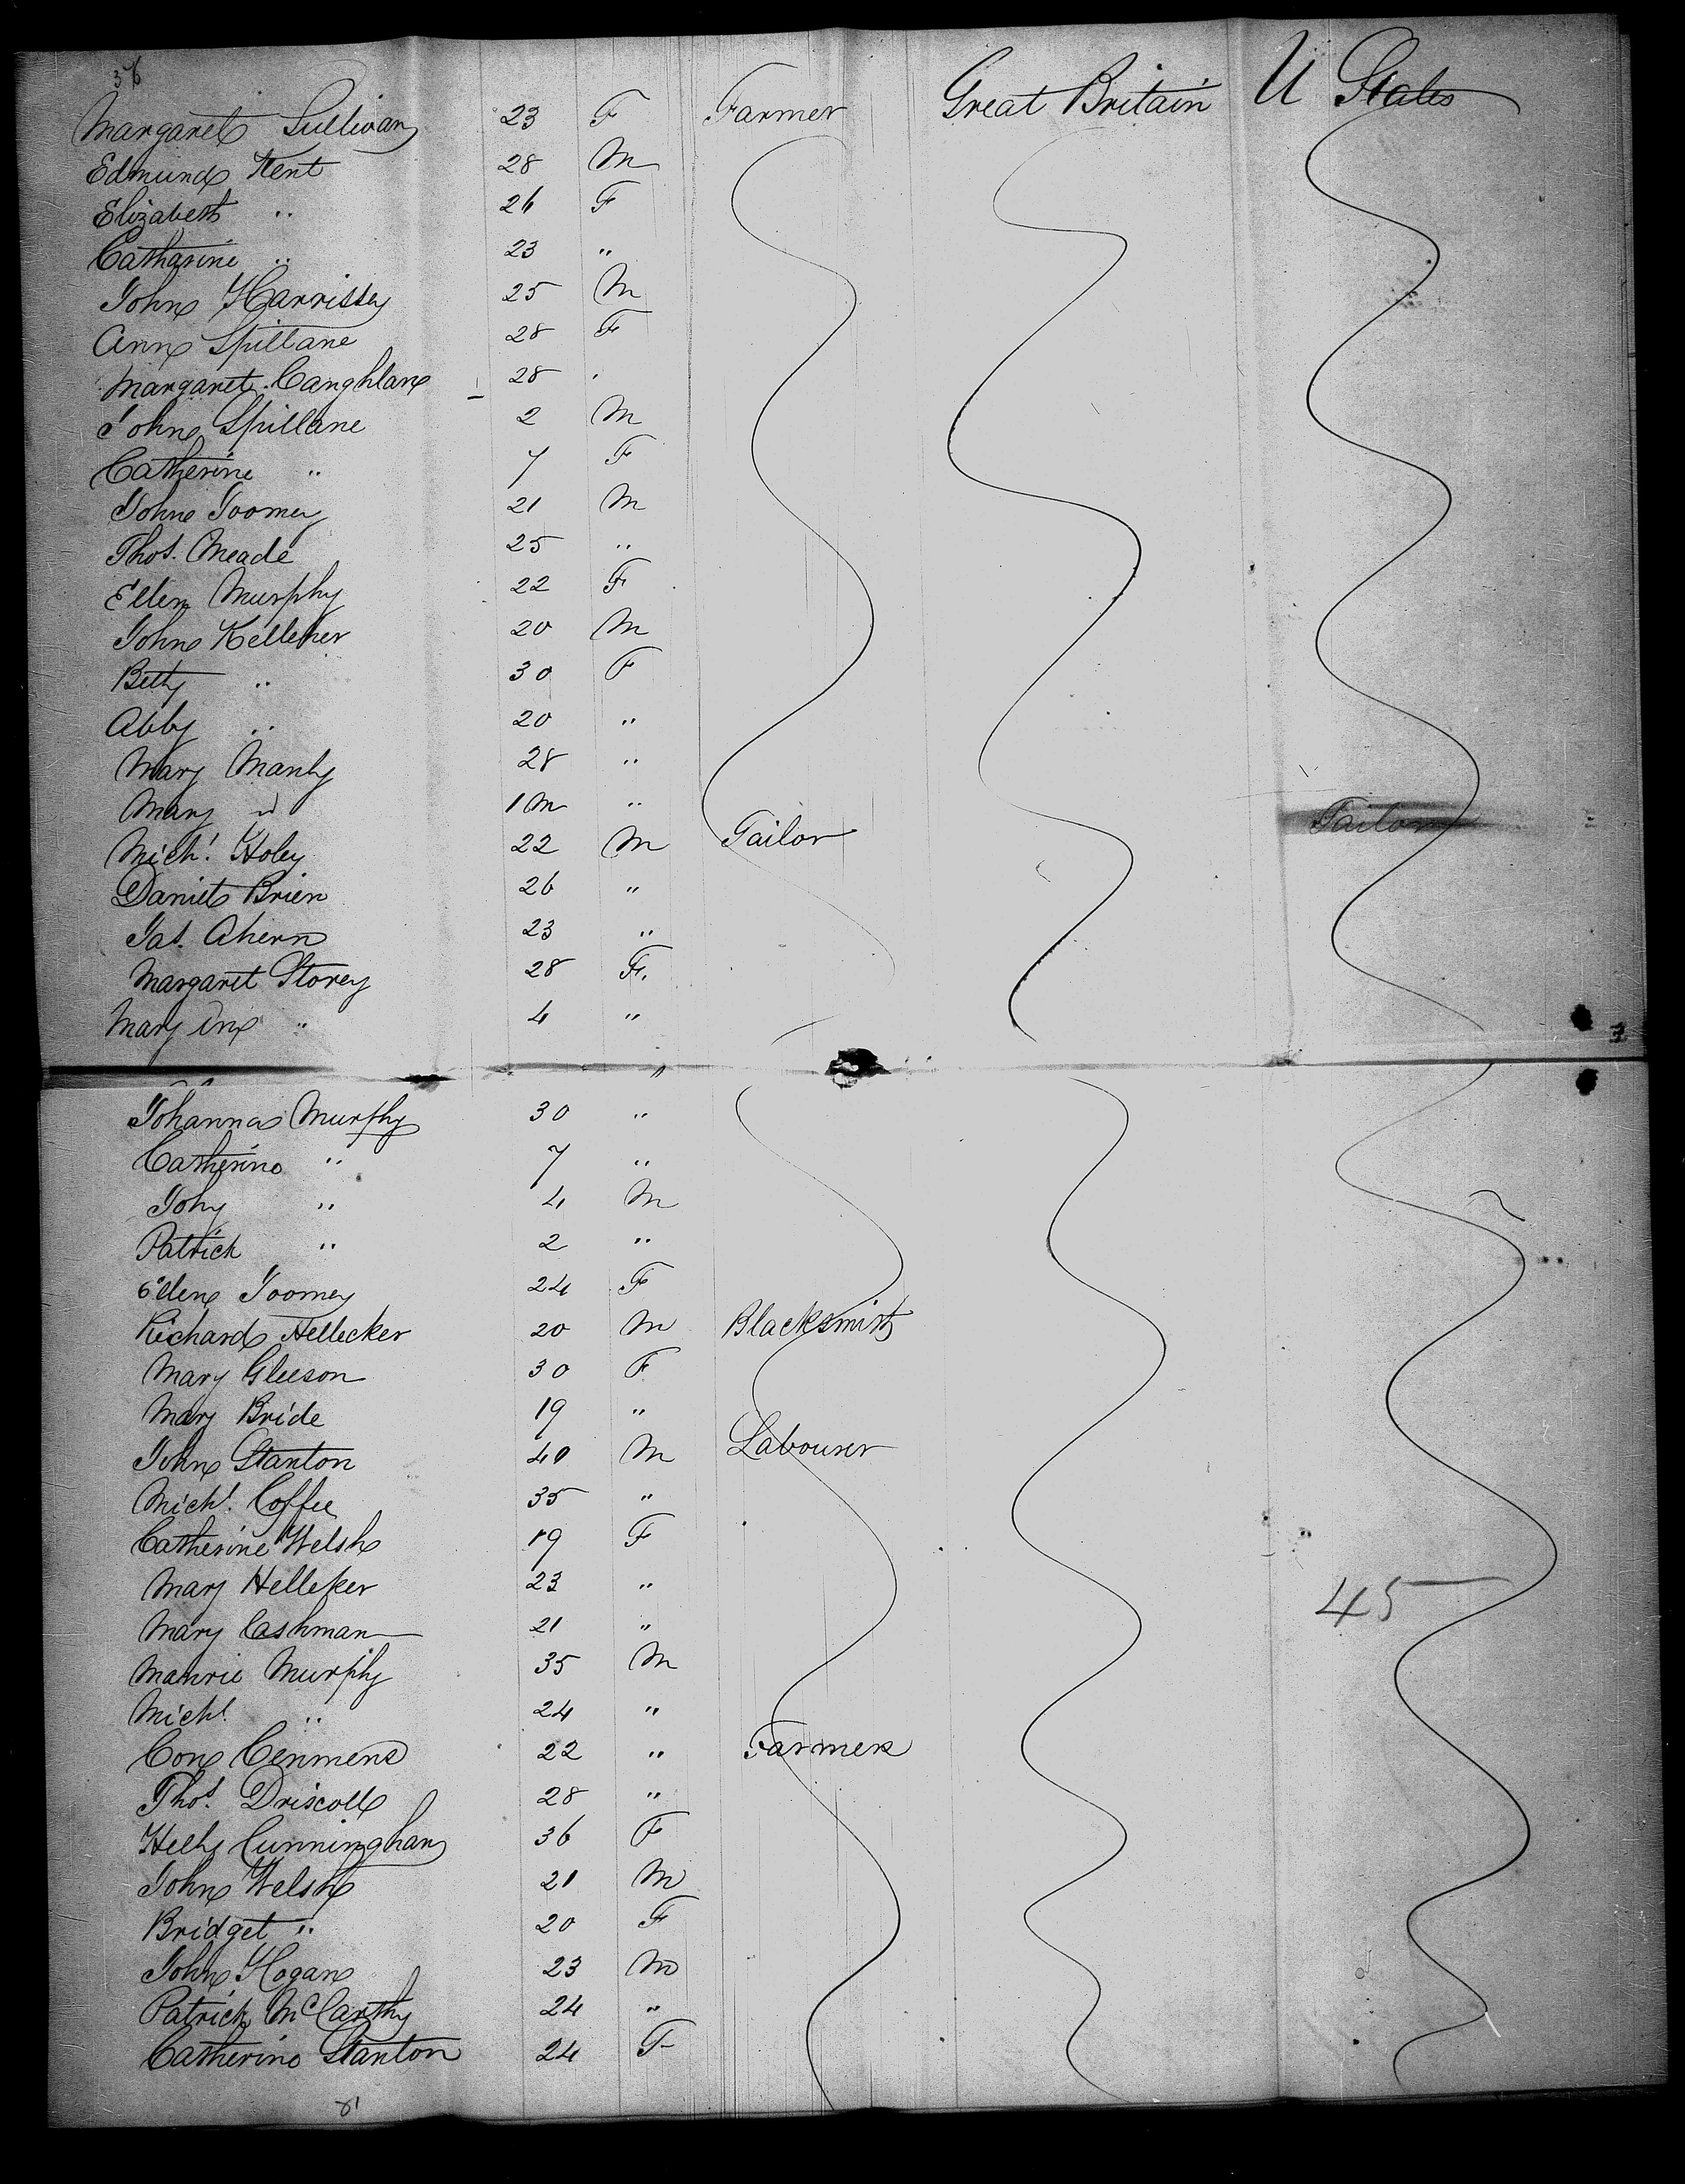 36
Margaret Sullivan 23 F Farmer Great Britain U States
Edmund Kent 28 M
Elizabeth " 26 F
Catharine " 23 "
John Harrissey 25 M
Ann Spillane 28 F
Margaret Canghlan 28 "
John Spillane 2 M
Catherine " 7 F
John Toomey 21 M
Thos. Meade 25 "
Ellen Murphy 22 F
John Kelleher 20 M
Betty " 30 F
Abby " 20 "
Mary Manly 28 "
Mary " 1m "
Tailor
Michl. Holey 22 M Tailor
Daniel Brien 26 "
Jas. Ahern 23 "
Margaret Storey 28 F.
Mary Ann " 4 "
"
Johanna Murphy 30 "
Catherine " 7 "
John " 4 M
Patrick " 2 "
Ellen Toomey 24 F
Richard Hellecker 20 M Blacksmith
Mary Gleeson 30 F
Mary Bride 19 "
John Stanton 40 M Labourer
Michl. Coffee 35 "
Catherine Welsh 19 F
Mary Helleker 23 "
45
Mary Cashman 21 "
Manrie Murphy 35 M
Michl. " 24 "
Con 22 " Farmers
Thos. Driscoll 28 "
Cunningham 36 F
John Welsh 21 M
Bridget " 20 F
John Hogan 23 M
Patrick McCarthy 24 "
Catherine Stanton 24 F